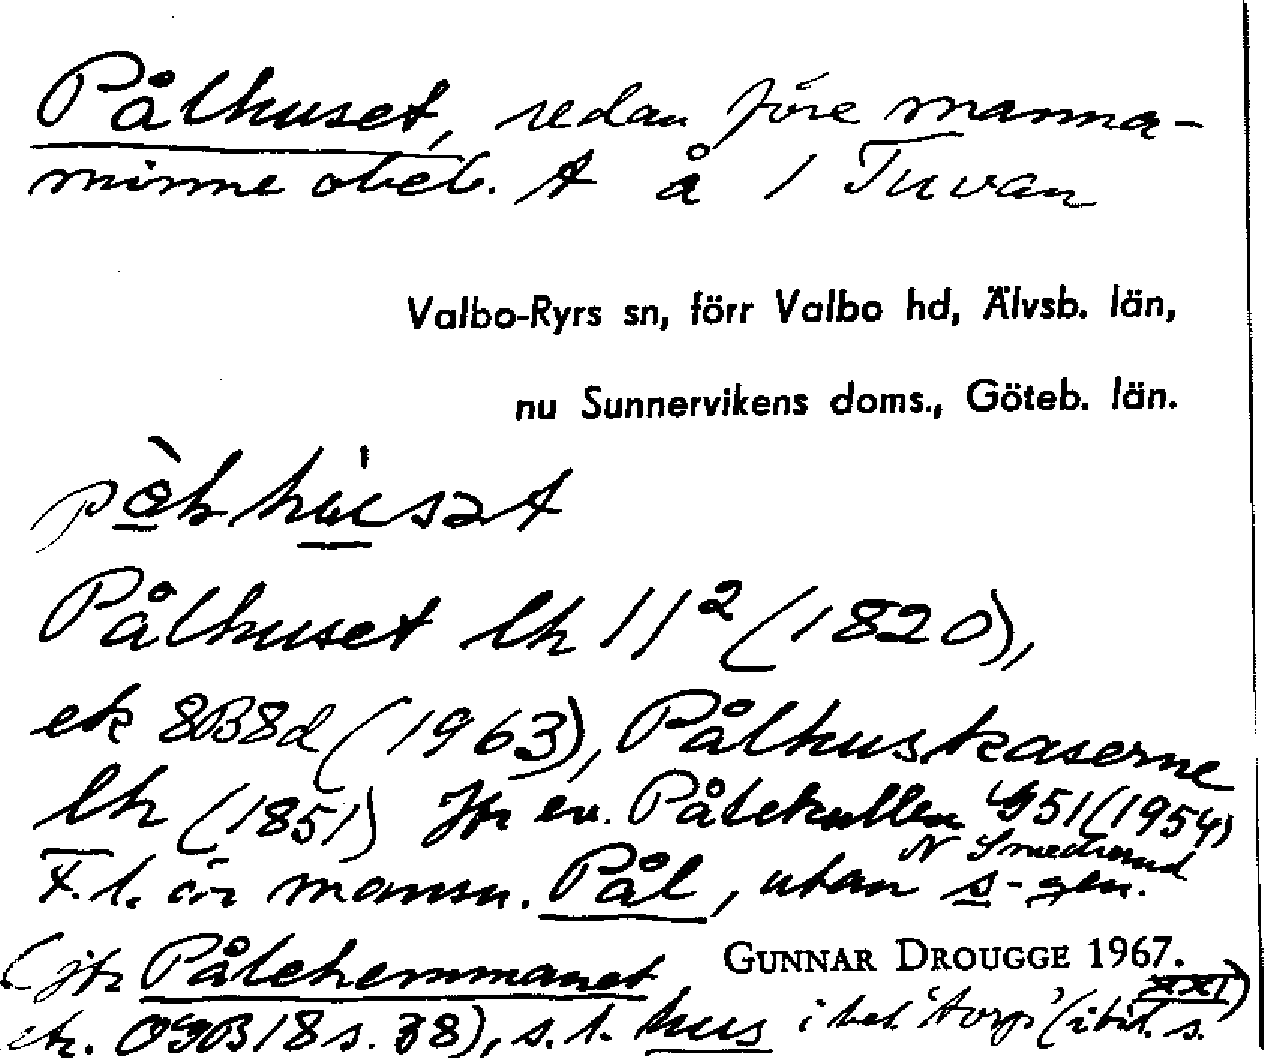 Pålhuset, redan före manna-
minne obeb. t å 1 Tuvan
Valbo-Ryrs sn, förr Valbo hd, Älvsb. län,
nu Sunnervikens doms., Göteb. län.
Pålhuset lh 11² (1820),
ek 8B8d (1963), Pålhuskaserne
lh (1851) Jfr ev. Pålekullen G51 (1954)
N
F.l. är mansn. Pål, utan s-gen.
(jfr Pålehemmanet GUNNAR DROUGGE 1967.
OGB 18 s. 38), s.l. hus i bet. 'torp' (ibid. s. XXI)